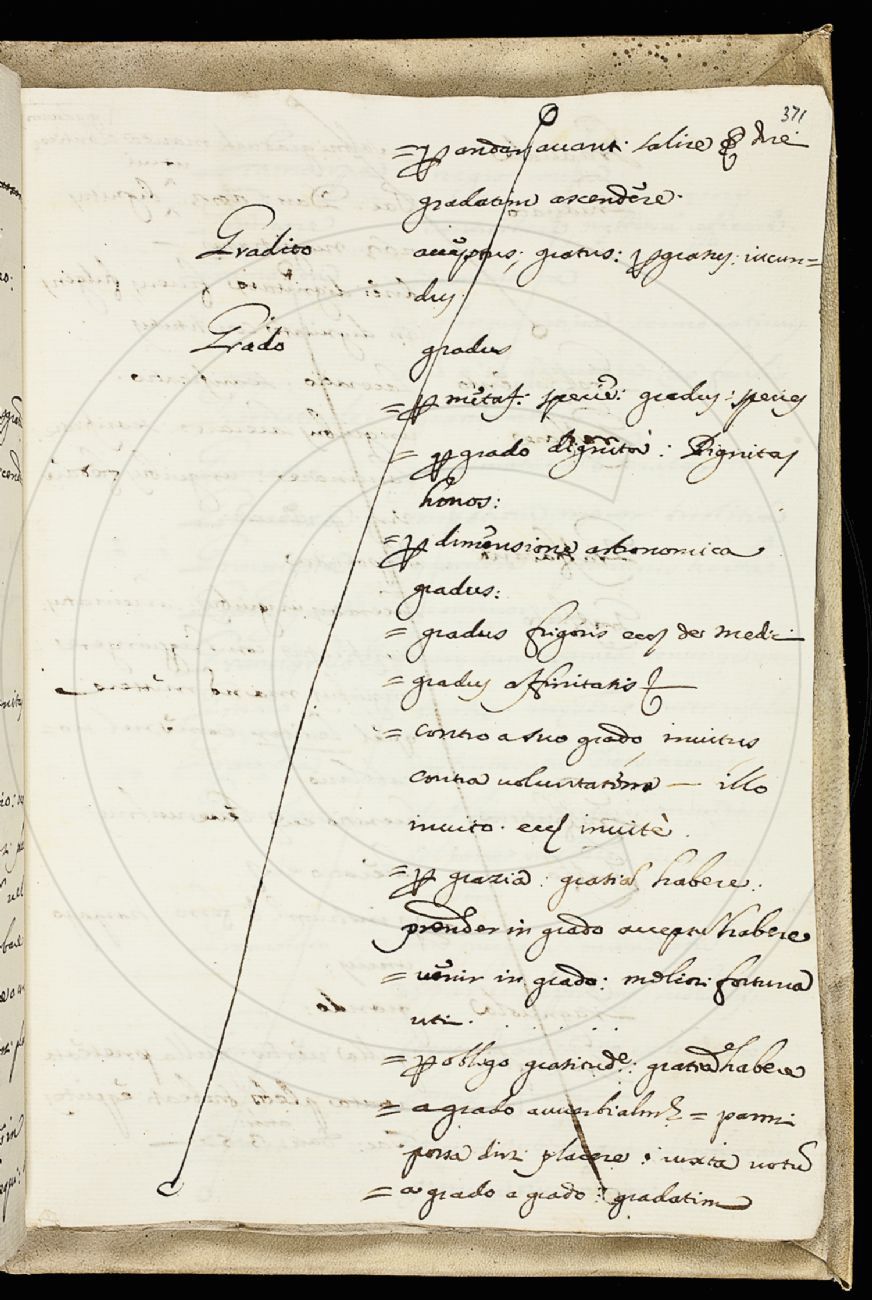 371
= p andar avant: salire & dre
gradatim ascendĕre.
Gradito accĕptus; gratus: p gratus: iucun=
dus:
Grado gradus
= p mĕtaf: speciĕ: gradus: species
= p grado dignità: Dignitas
honos:
= p dimĕnsione astronomica
gradus:
= gradus frigoris de medi:
= gradus affinitatis
= contro a suo grado, invitus
contra voluntatĕm — illo
invito. invitè.
= p grazia: gratiā habere:
prender in grado acceptū habere
= vĕnir in grado: meliori fortuna
uti.
= p obligo gratitude: gratiā habere
= a grado = parmi
possa dirsi placere: iuxta votū
= a grado a grado: gradatim